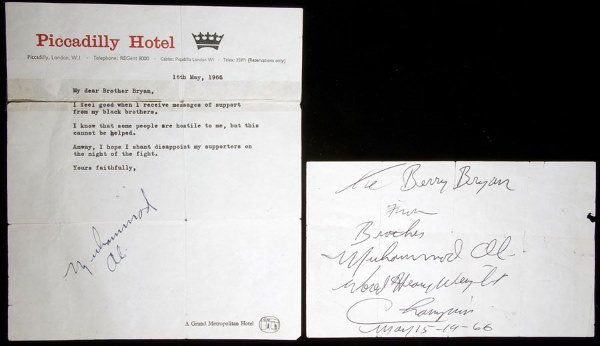 Piccadilly Hotel
Piccadilly, London, W.1 · Telephone: REGent 8000 · Cables: Piqudillo London W1 · Telex: 25795 (Reservations only)
16th May, 1966
My dear Brother Bryan,
I feel good when I receive messages of support
from my black brothers.
I know that some people are hostile to me, but this
cannot be helped.
Anway, I hope I shant disappoint my supporters on
the night of the fight.
Yours faithfully,
Muhammad
Ali
A Grand Metropolitan Hotel
Berry Bryan
From
Muhammad Ali
World HeavyWeight
Champion
May 15-19-66